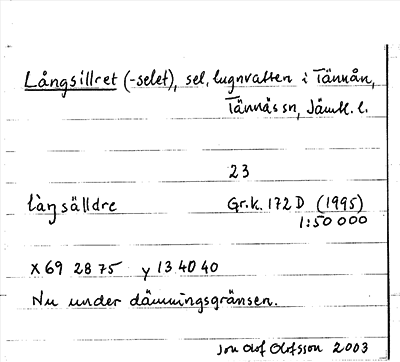 Långsillret (-selet), sel, lugnvatten i Tännån,
Tännäs sn, Jämtl. l.
23
làŋsälldre Gr.k. 172 D (1995)
1:50 000
X 69 28 75 y 13 40 40
Nu under dämningsgränsen.
Jon Olof Olofsson 2003